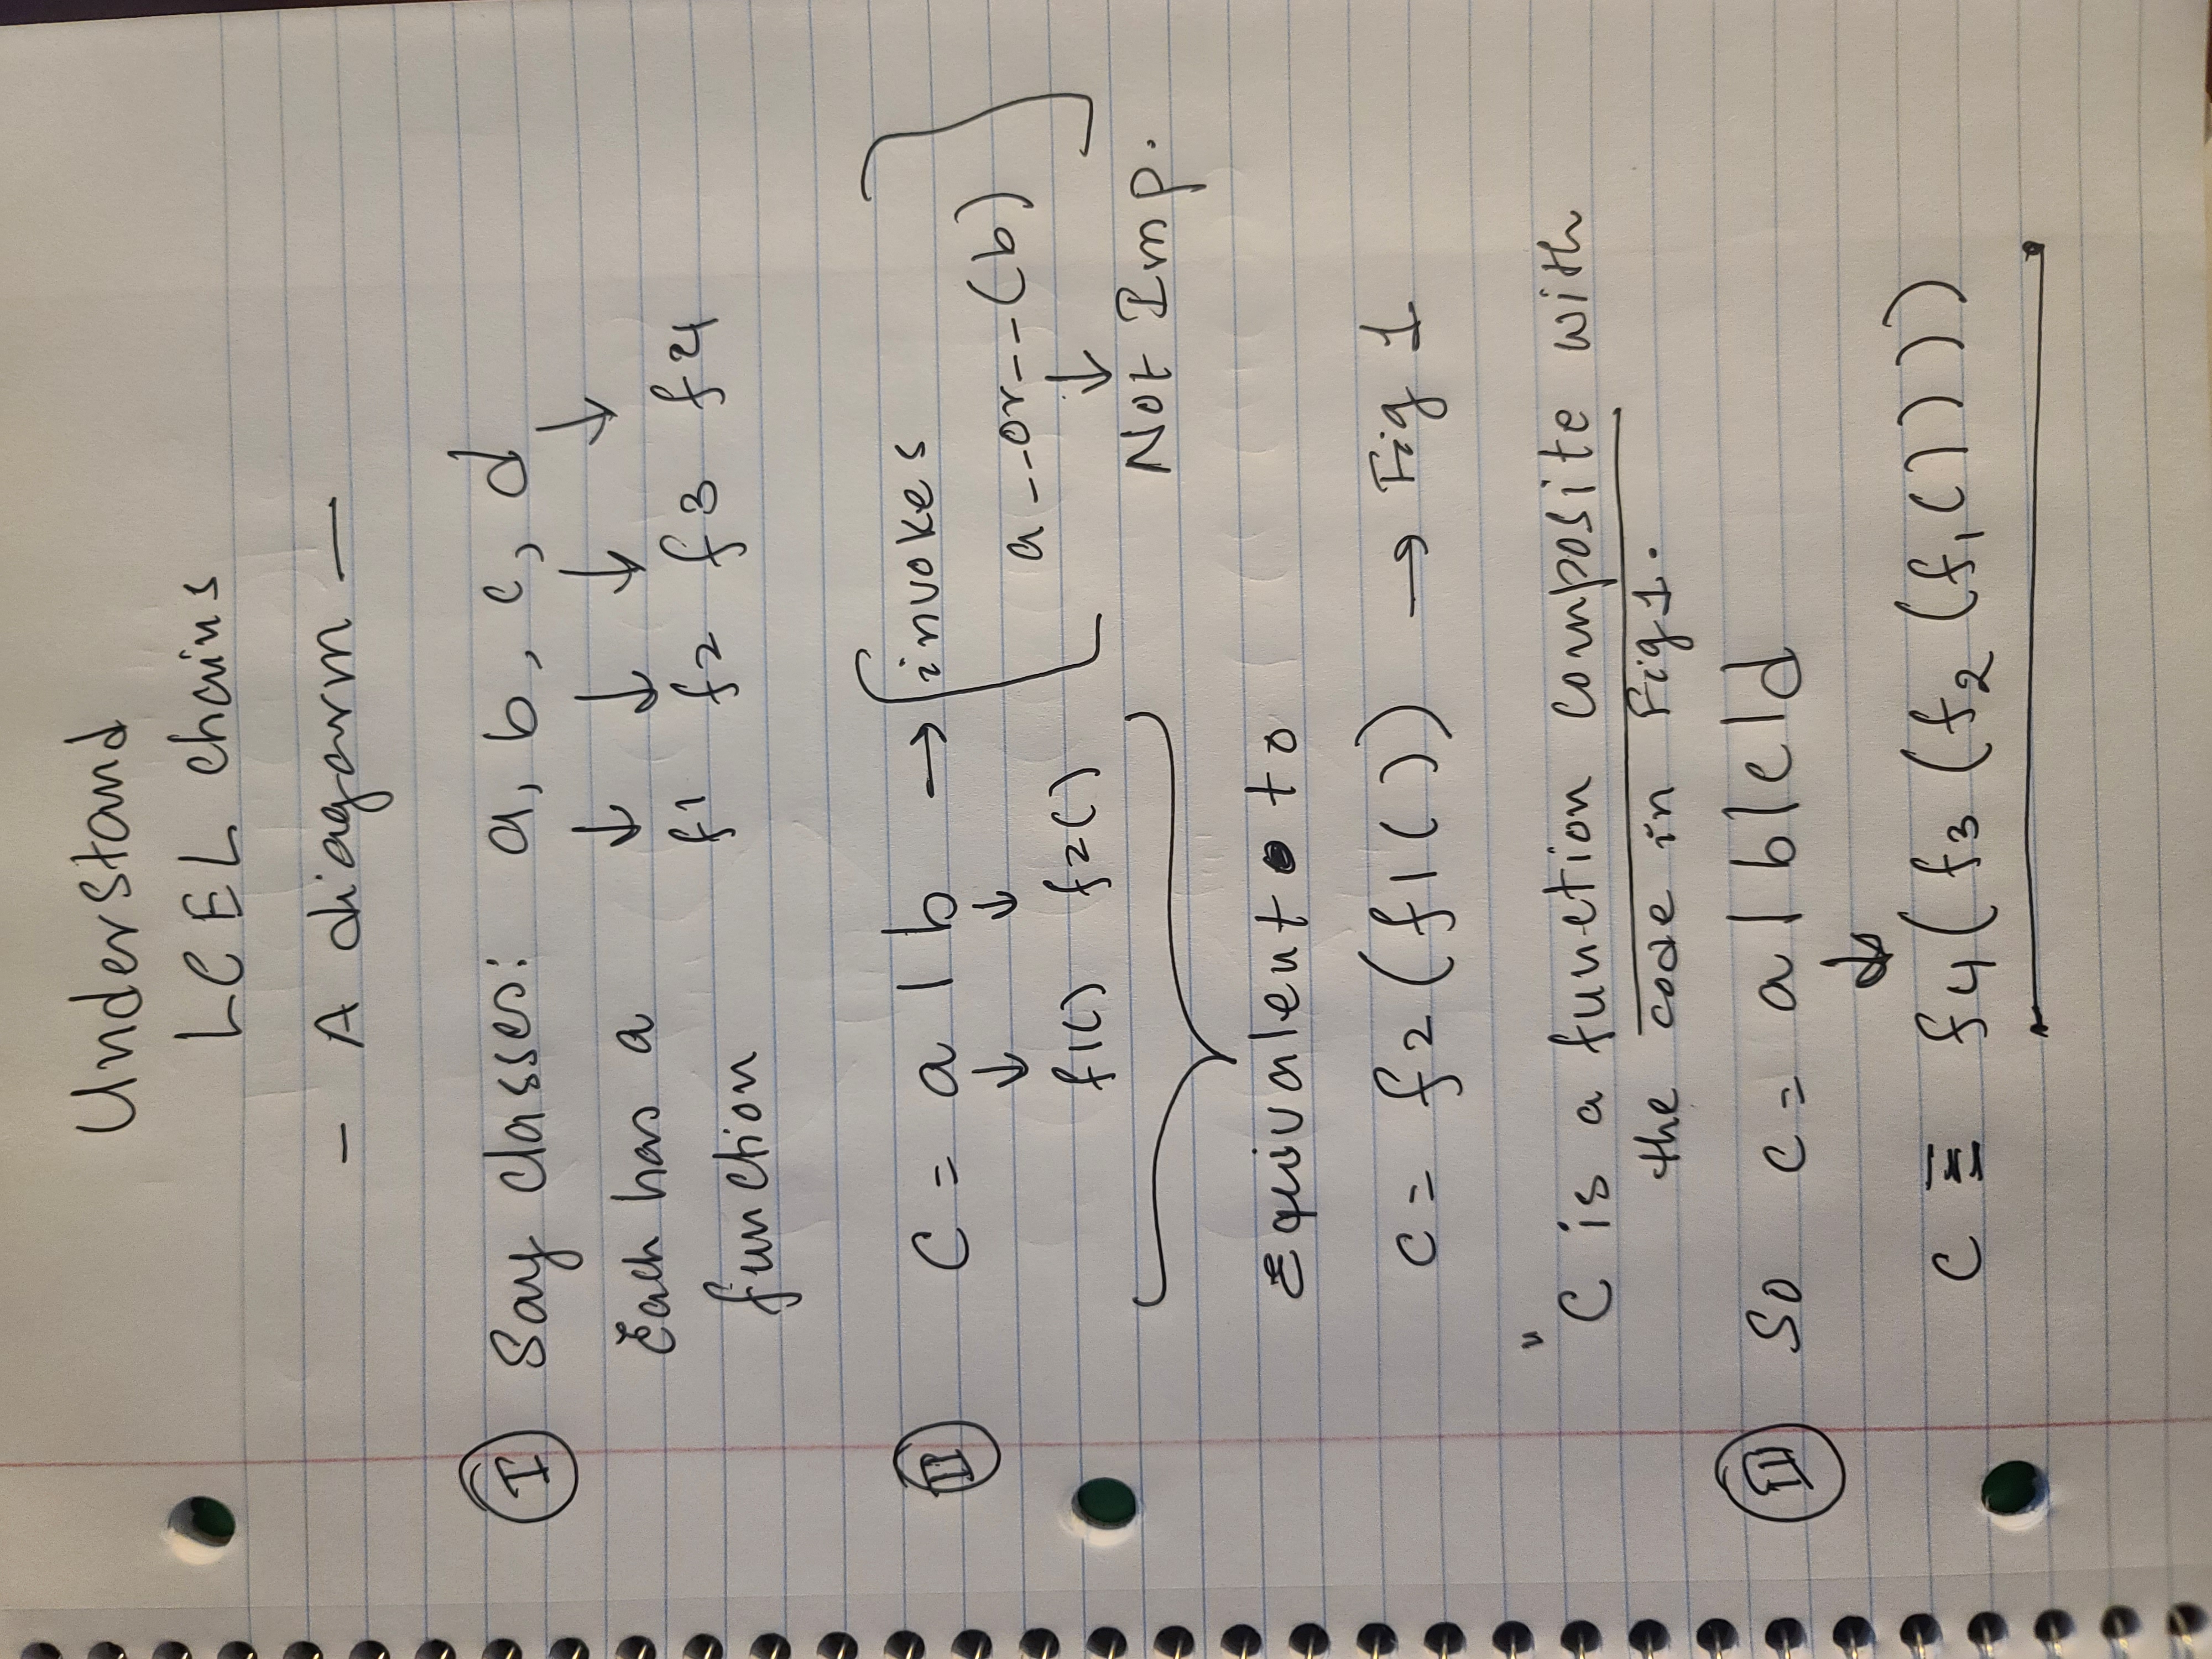 Understand
LCEL chains
- A diagarm -
I Say classes: a, b, c, d
↓ ↓ ↓ ↓
Each has a f1 f2 f3 f4
function
II C = a | b → [invokes
↓ ↓ a--or--(b)]
f1() f2() ↓
Not Imp.
Equivalent to
C = f2(f1()) → Fig 1
" C is a function composite with
the code in Fig1.
III So C = a|b|c|d
↓
C ≡ f4(f3(f2(f1())))